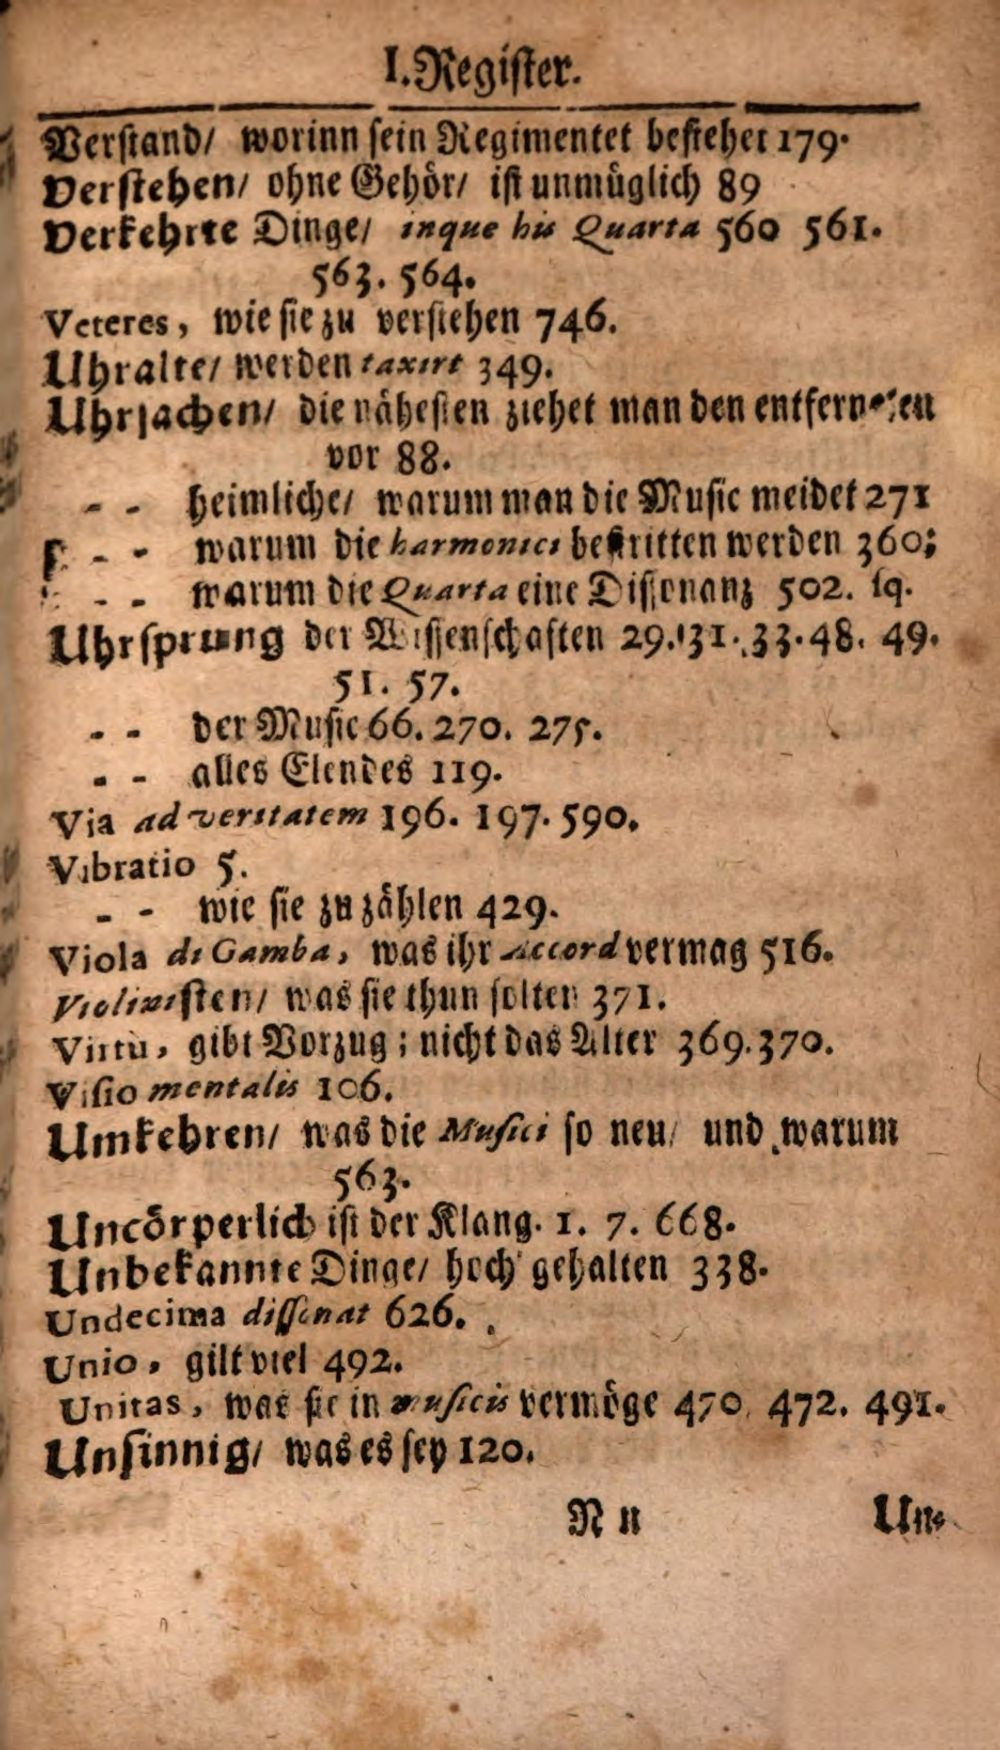 I. Register.
Verstand/ worinn sein Regimentet bestehet 179.
Verstehen/ ohne Gehör/ ist unmüglich 89
Verkehrte Dinge/ inque his Quarta 560 561.
563. 564.
Veteres, wie sie zu verstehen 746.
Uhralte/ werden taxirt 349.
Uhrsachen/ die nähesten ziehet man den entferneten
vor 88.
- - heimliche/ warum man die Music meidet 271
- - warum die harmonici bestritten werden 360;
- - warum die Quarta eine Dissonanz 502. sq.
Uhrsprung der Wissenschaften 29. 31. 33. 48. 49.
51. 57.
- - der Music 66. 270. 275.
- - alles Elendes 119.
Via ad veritatem 196. 197. 590.
Vibratio 5.
- - wie sie zu zählen 429.
Viola di Gamba, was ihr Accord vermag 516.
Violinisten/ was sie thun solten 371.
Virtù, gibt Vorzug; nicht das Alter 369. 370.
Visio mentalis 106.
Umkehren/ was die Musici so neu/ und warum
563.
Uncörperlich ist der Klang. 1. 7. 668.
Unbekannte Dinge/ hoch gehalten 338.
Undecima dissonat 626.
Unio, gilt viel 492.
Unitas, was sie in musicis vermöge 470 472. 491.
Unsinnig/ was es sey 120.
N n Un-